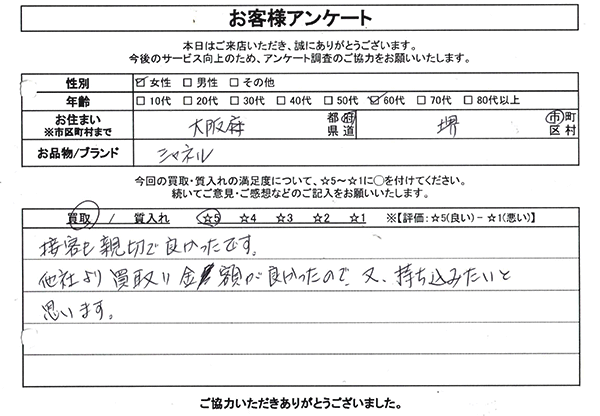 お客様アンケート
本日はご来店いただき、誠にありがとうございます。
今後のサービス向上のため、アンケート調査のご協力をお願いいたします。
性別 ☑女性 □男性 □その他
年齢 □10代 □20代 □30代 □40代 □50代 ☑60代 □70代 □80代以上
お住まい ※市区町村まで 大阪府 都府県道 堺 市町区村
お品物/ブランド シャネル
今回の買取・質入れの満足度について、☆5~☆1に○を付けてください。
続いてご意見・ご感想などのご記入をお願いいたします。
買取 / 質入れ ☆5 ☆4 ☆3 ☆2 ☆1 ※【評価:☆5(良い)-☆1(悪い)】
接客も親切で良かったです。
他社より買取り金額が良かったので、又、持ち込みたいと
思います。
ご協力いただきありがとうございました。